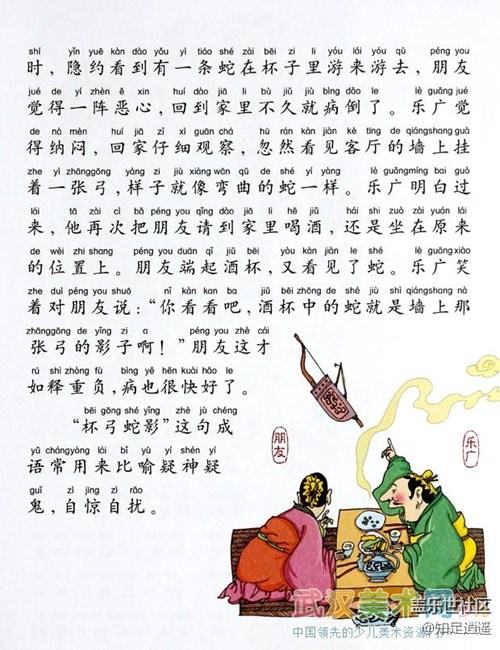 shí yǐn yuē kàn dào yǒu yì tiáo shé zài bēi zi li yóu lái yóu qù péng you
时，隐约看到有一条蛇在杯子里游来游去，朋友
jué de yí zhèn ě xin huí dào jiā li bù jiǔ jiù bìng dǎo le lè guǎng jué
觉得一阵恶心，回到家里不久就病倒了。乐广觉
de nà mèn huí jiā zǐ xì guān chá hū rán kàn jiàn kè tīng de qiángshang guà
得纳闷，回家仔细观察，忽然看见客厅的墙上挂
zhe yì zhānggōng yàng zi jiù xiàng wān qū de shé yí yàng lè guǎngmíng bai guò
着一张弓，样子就像弯曲的蛇一样。乐广明白过
lái tā zài cì bǎ péng you qǐng dào jiā li hē jiǔ hái shi zuò zài yuán lái
来，他再次把朋友请到家里喝酒，还是坐在原来
de wèi zhi shang péng you duān qǐ jiǔ bēi yòu kàn jiàn le shé lè guǎngxiào
的位置上。朋友端起酒杯，又看见了蛇。乐广笑
zhe duì péng you shuō nǐ kàn kan ba jiǔ bēi zhōng de shé jiù shì qiáng shang nà
着对朋友说：“你看看吧，酒杯中的蛇就是墙上那
zhānggōng de yǐng zi a péng you zhè cái
张弓的影子啊！”朋友这才
rú shì zhòng fù bìng yě hěn kuài hǎo le
如释重负，病也很快好了。
bēi gōng shé yǐng zhè jù chéng
“杯弓蛇影”这句成
yǔ chángyòng lái bǐ yù yí shén yí
语常用来比喻疑神疑
guǐ zì jīng zì rǎo
鬼，自惊自扰。
朋友
乐广
武汉美术网
盖乐世社区
中国领先的少儿美术资源
@知足逍遥